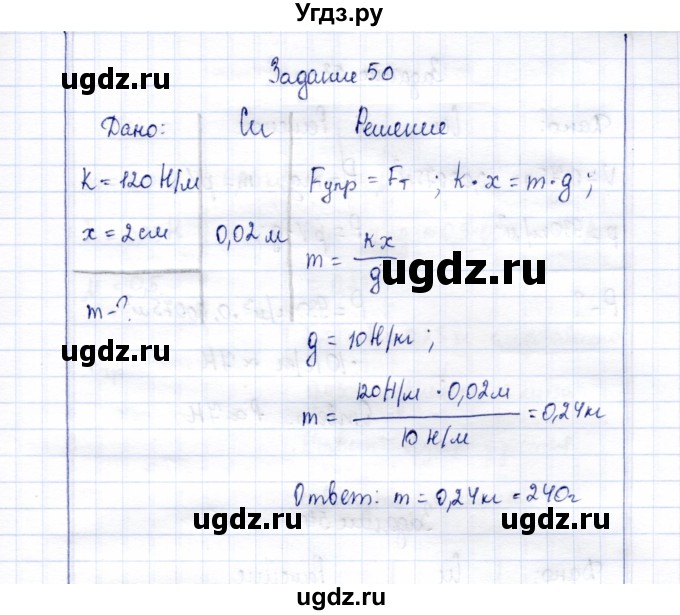 Угдз.ру
Задание 50
ugdz.ru ugdz.ru
Дано: Си Решение
k = 120 Н/м Fупр = Fт ; k·x = m·g ;
x = 2 см 0,02 м
m = kx/g
ugdz.ru
m - ?
ugdz.ru
g = 10 Н/кг ;
m = 120 Н/м · 0,02 м / 10 Н/м = 0,24 кг
ugdz.ru
Ответ: m = 0,24 кг = 240 г
ugdz.ru ugdz.ru
ugdz.ru